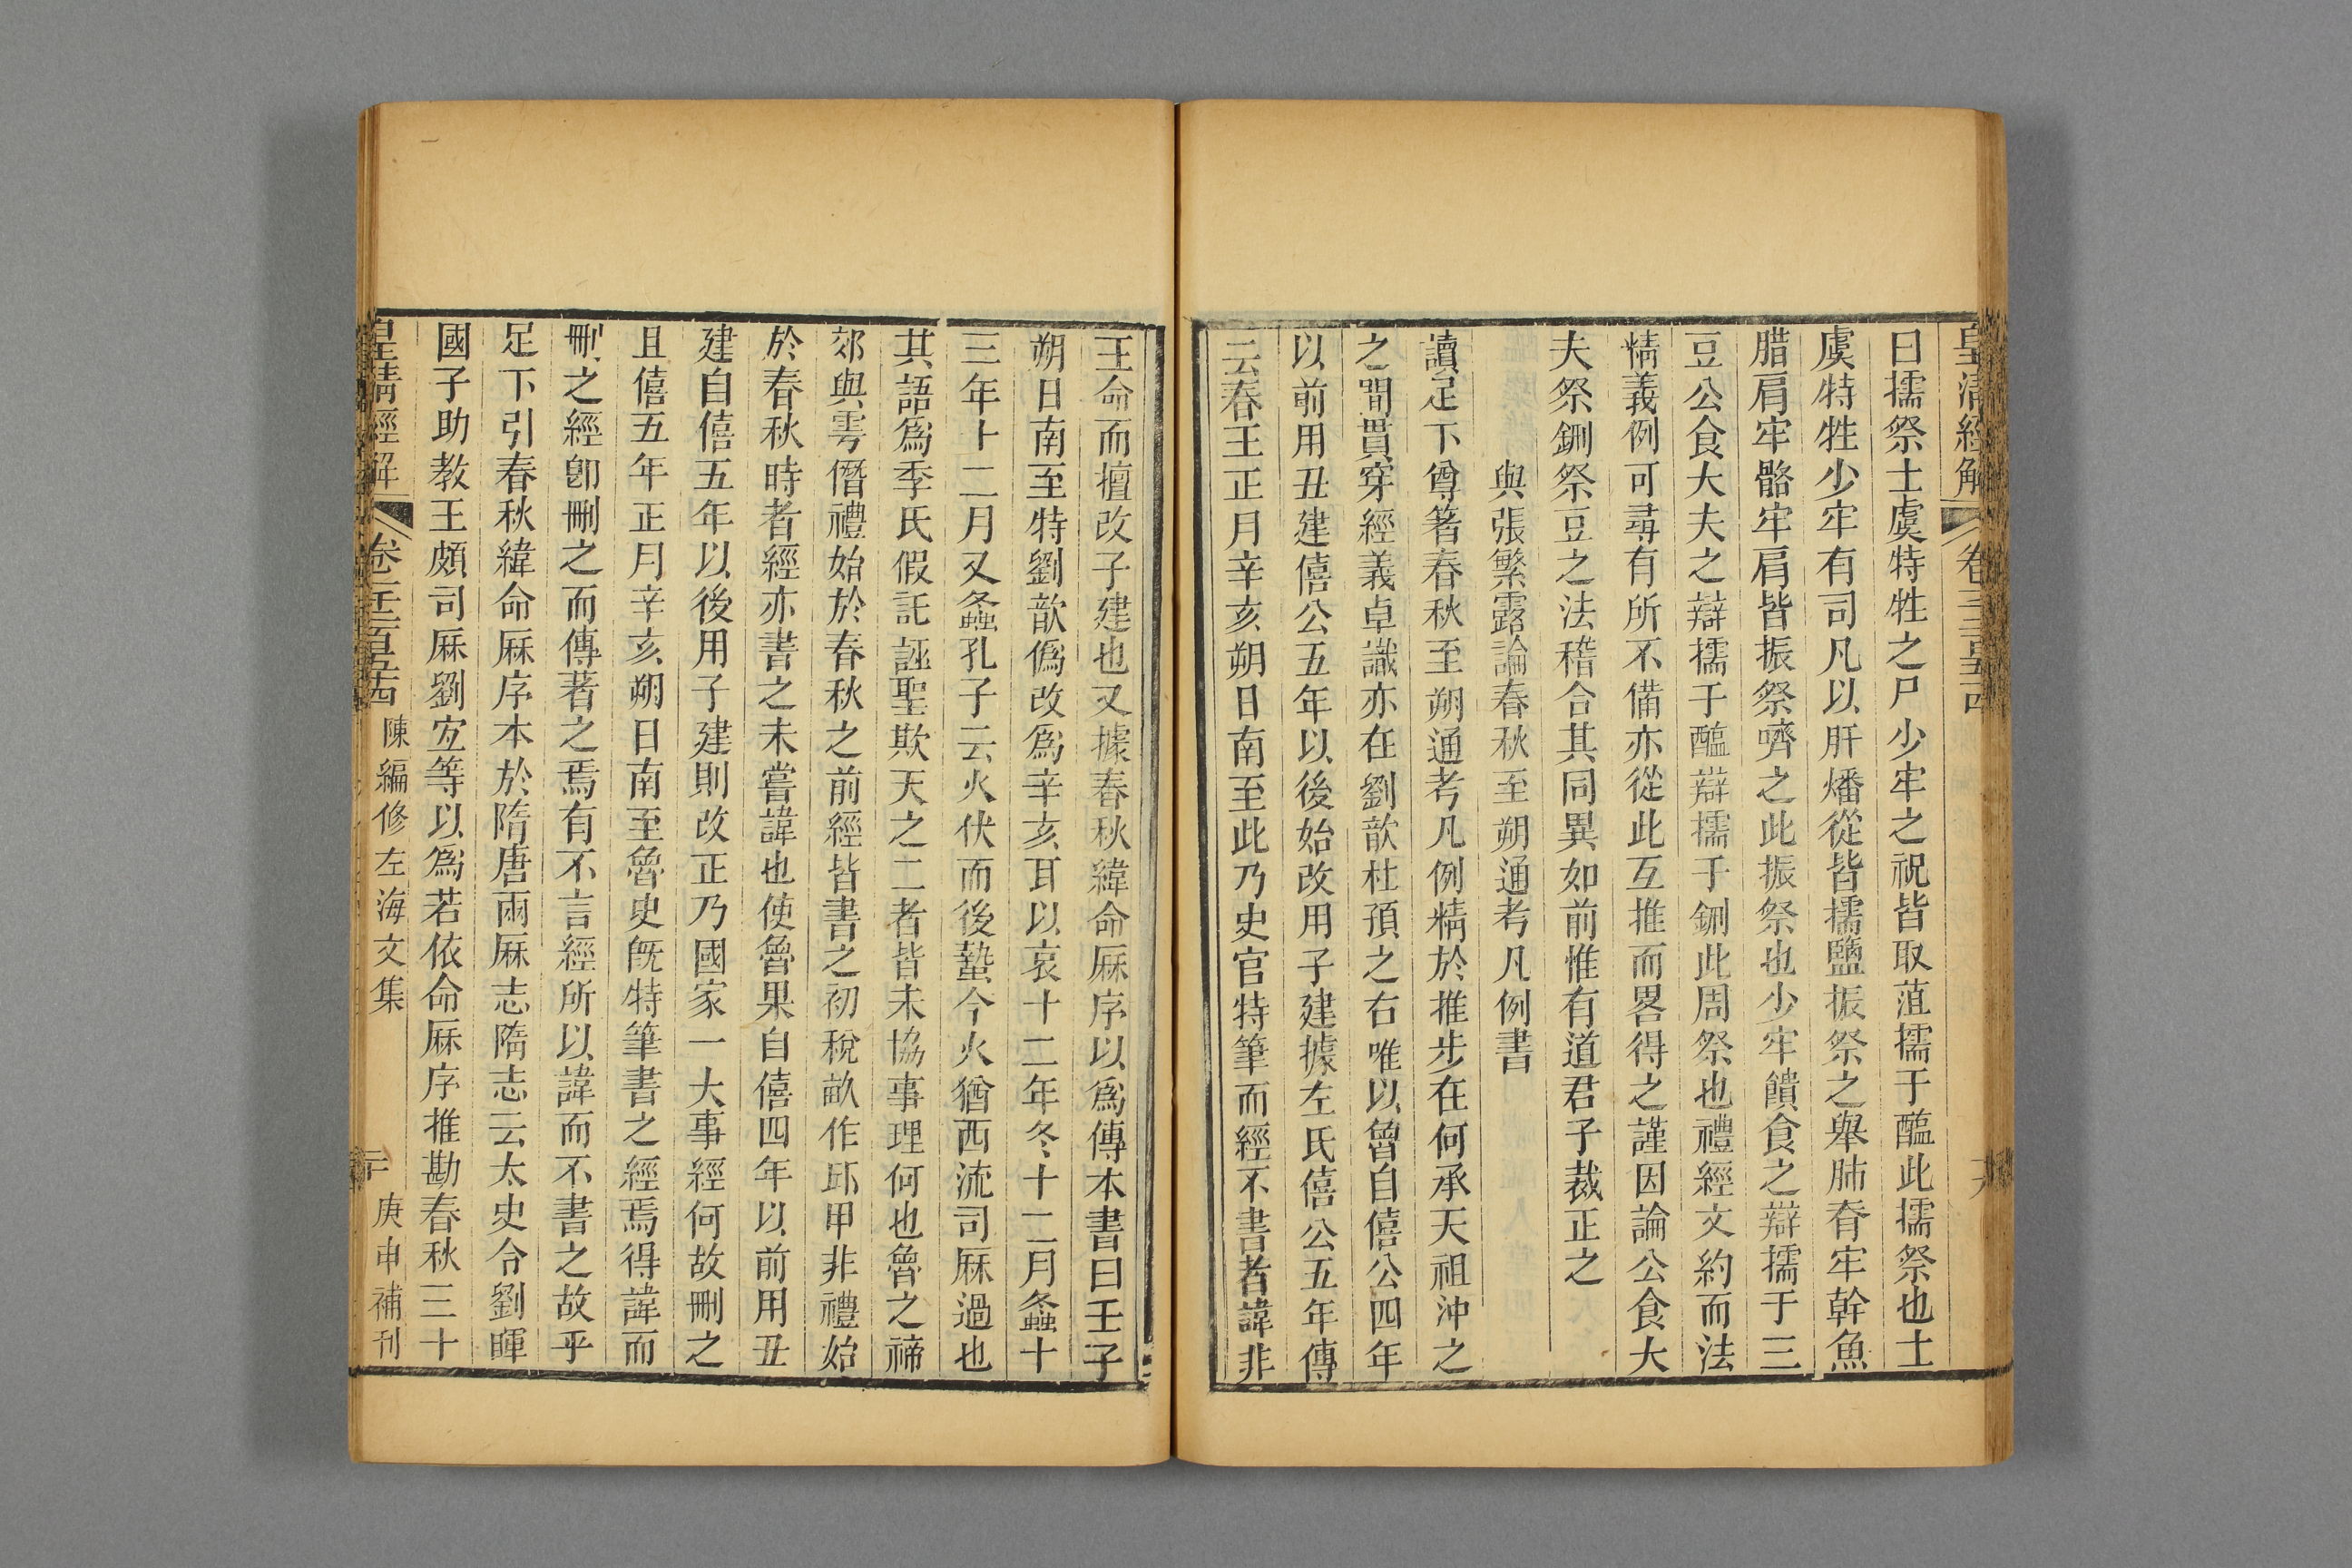 皇清經解
卷
曰擩祭士虞特牲之尸少牢之祝皆取菹擩于醢此擩祭也士
虞特牲少牢有司凡以肝燔從皆擩鹽振祭之舉肺脊牢幹魚
腊肩牢骼牢肩皆振祭嚌之此振祭也少牢饋食之辯擩于三
豆公食大夫之辯擩于醢辯擩于鉶此周祭也禮經文約而法
精義例可尋有所不備亦從此互推而畧得之謹因論公食大
夫祭鉶祭豆之法稽合其同異如前惟有道君子裁正之
與張繁露論春秋至朔通考凡例書
讀足下尊箸春秋至朔通考凡例精於推步在何承天祖沖之
之閒貫穿經義卓識亦在劉歆杜預之右唯以魯自僖公四年
以前用丑建僖公五年以後始改用子建據左氏僖公五年傳
云春王正月辛亥朔日南至此乃史官特筆而經不書者諱非
王命而擅改子建也又據春秋緯命厤序以爲傳本書曰壬子
朔日南至特劉歆僞改爲辛亥耳以哀十二年冬十二月螽十
三年十二月又螽孔子云火伏而後蟄今火猶西流司厤過也
其語爲季氏假託誣聖欺天之二者皆未協事理何也魯之禘
郊與雩僭禮始於春秋之前經皆書之初稅畝作邱甲非禮始
於春秋時者經亦書之未嘗諱也使魯果自僖四年以前用丑
建自僖五年以後用子建則改正乃國家一大事經何故刪之
且僖五年正月辛亥朔日南至魯史旣特筆書之經焉得諱而
刪之經卽刪之而傳著之焉有不言經所以諱而不書之故乎
足下引春秋緯命厤序本於隋唐兩厤志隋志云太史令劉暉
國子助教王頗司厤劉宜等以爲若依命厤序推勘春秋三十
皇清經解
卷
陳編修左海文集
庚申補刊